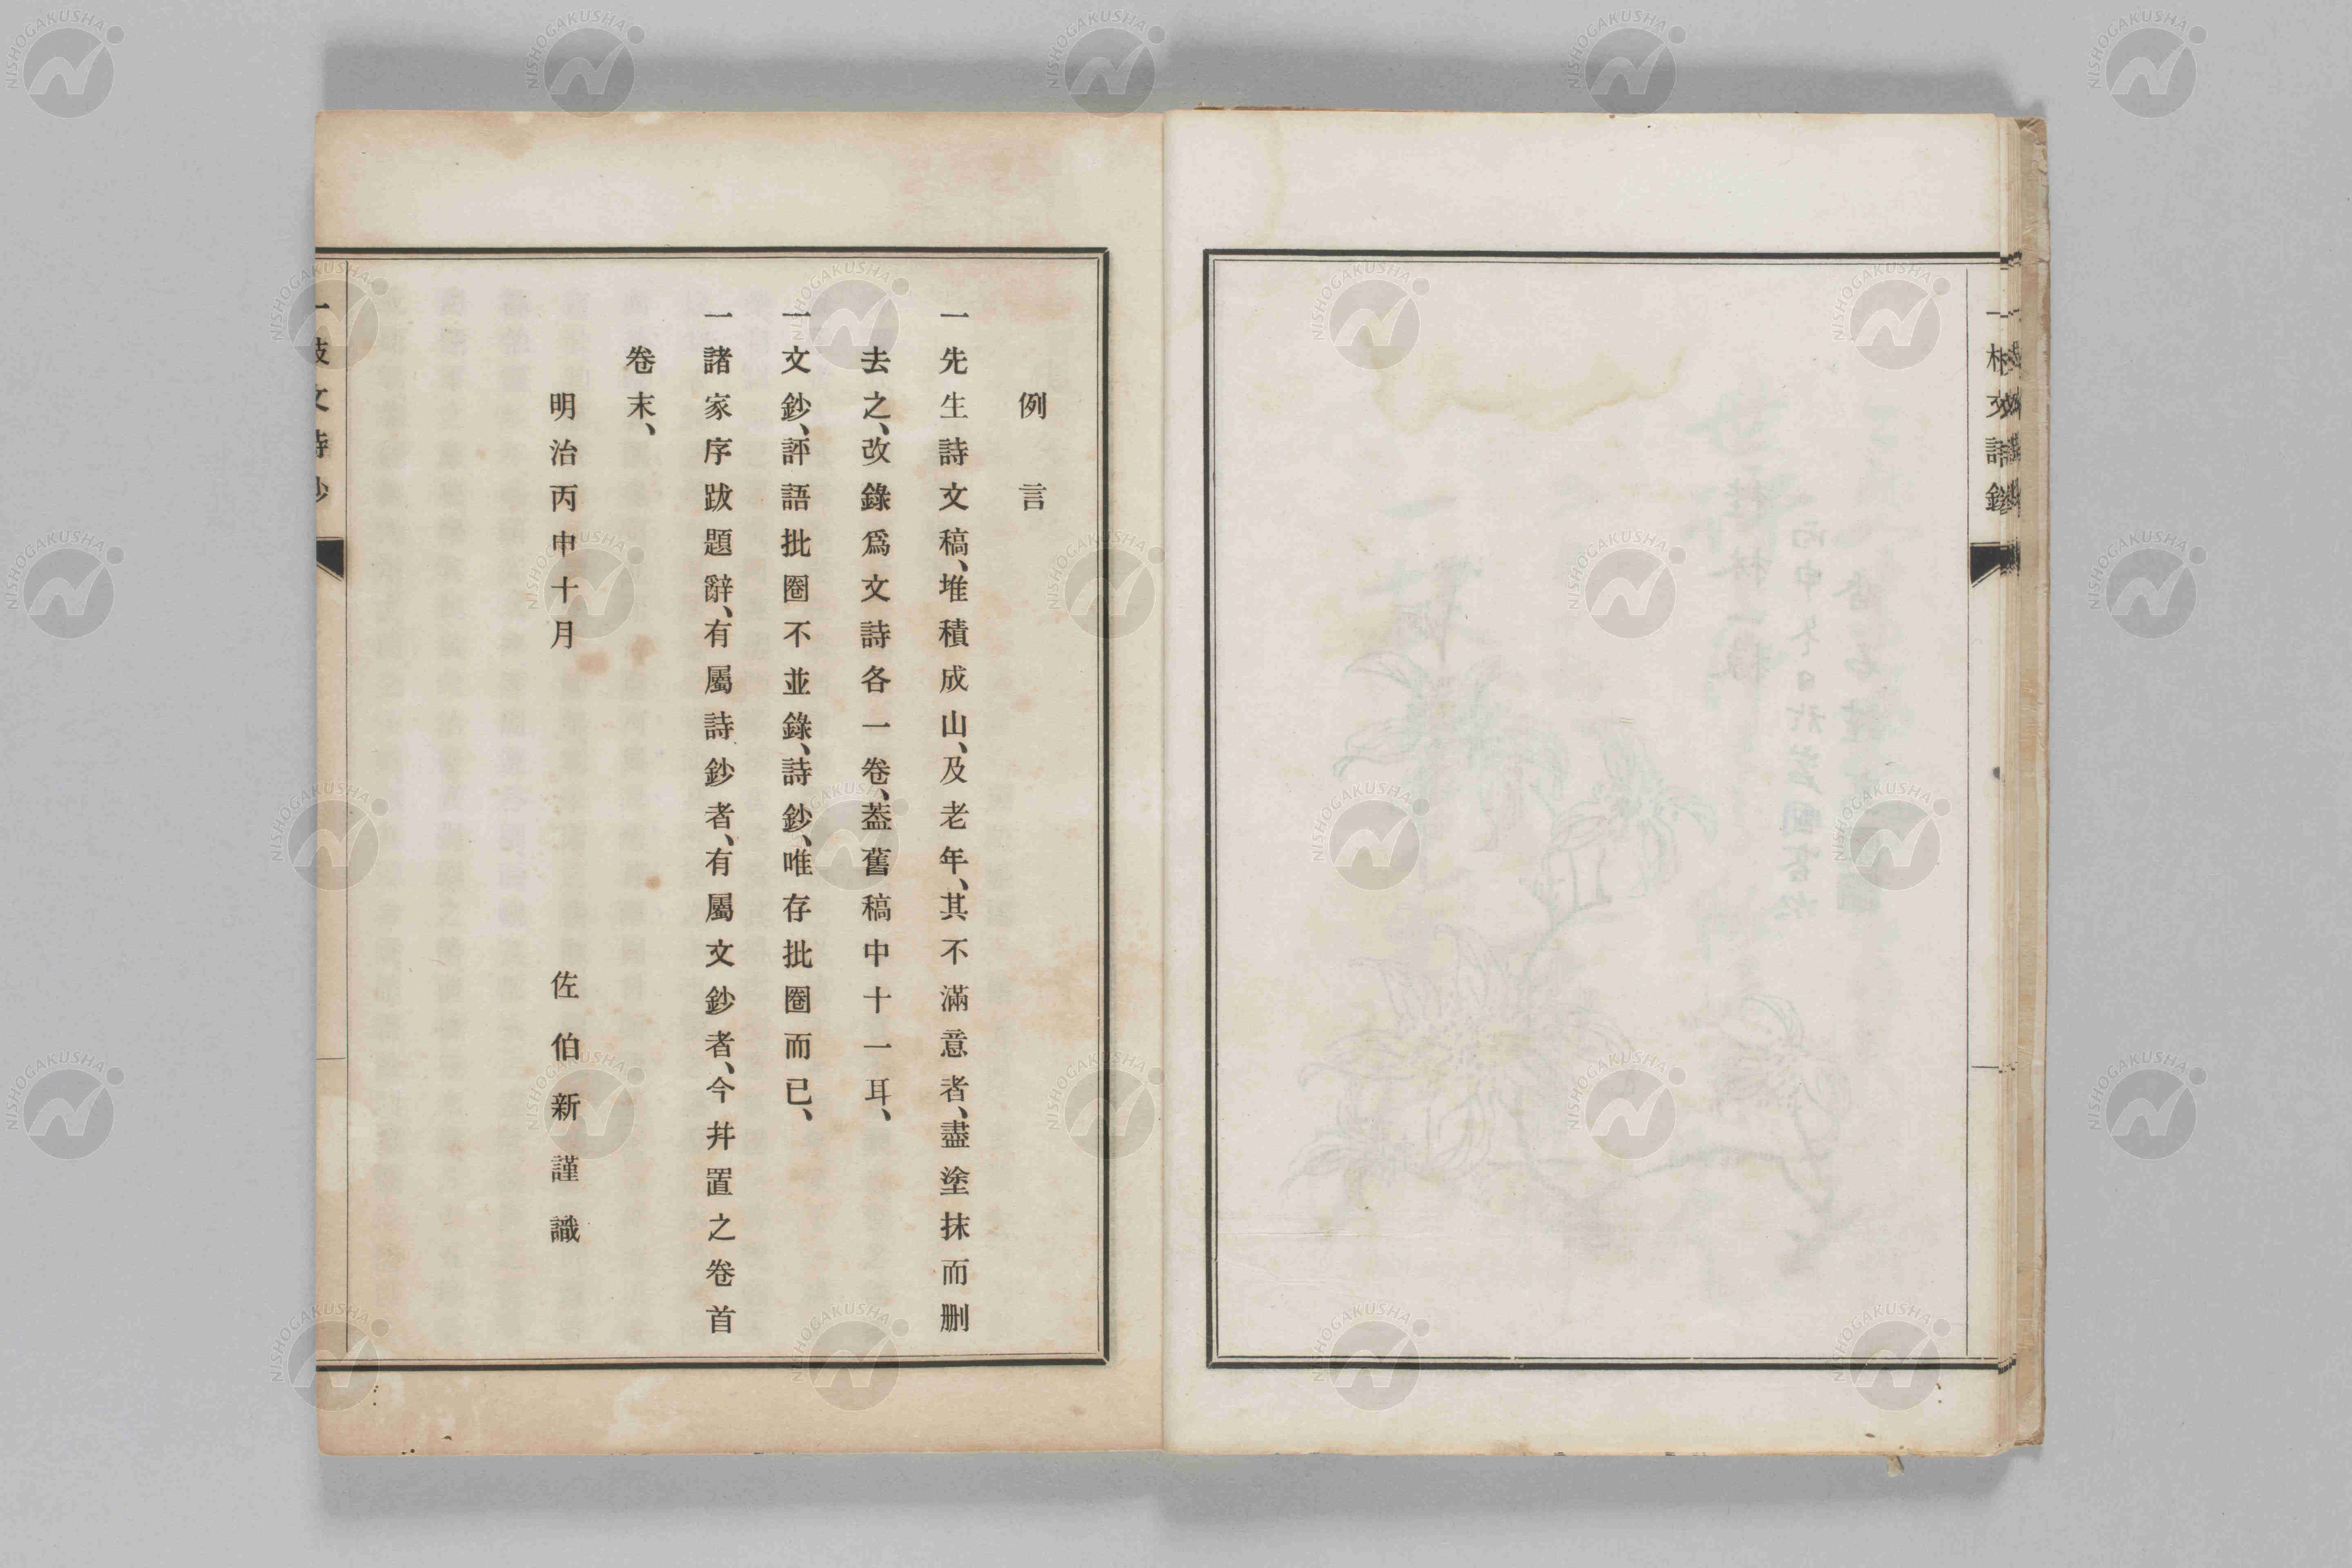 例言
一先生詩文稿、堆積成山、及老年、其不滿意者、盡塗抹而刪
去之、改錄爲文詩各一卷、蓋舊稿中十一耳、
一文鈔、評語批圈不並錄、詩鈔、唯存批圈而已、
一諸家序跋題辭、有屬詩鈔者、有屬文鈔者、今幷置之卷首
卷末、
明治丙申十月
佐伯新謹識
一枝文詩鈔
NISHOGAKUSHA